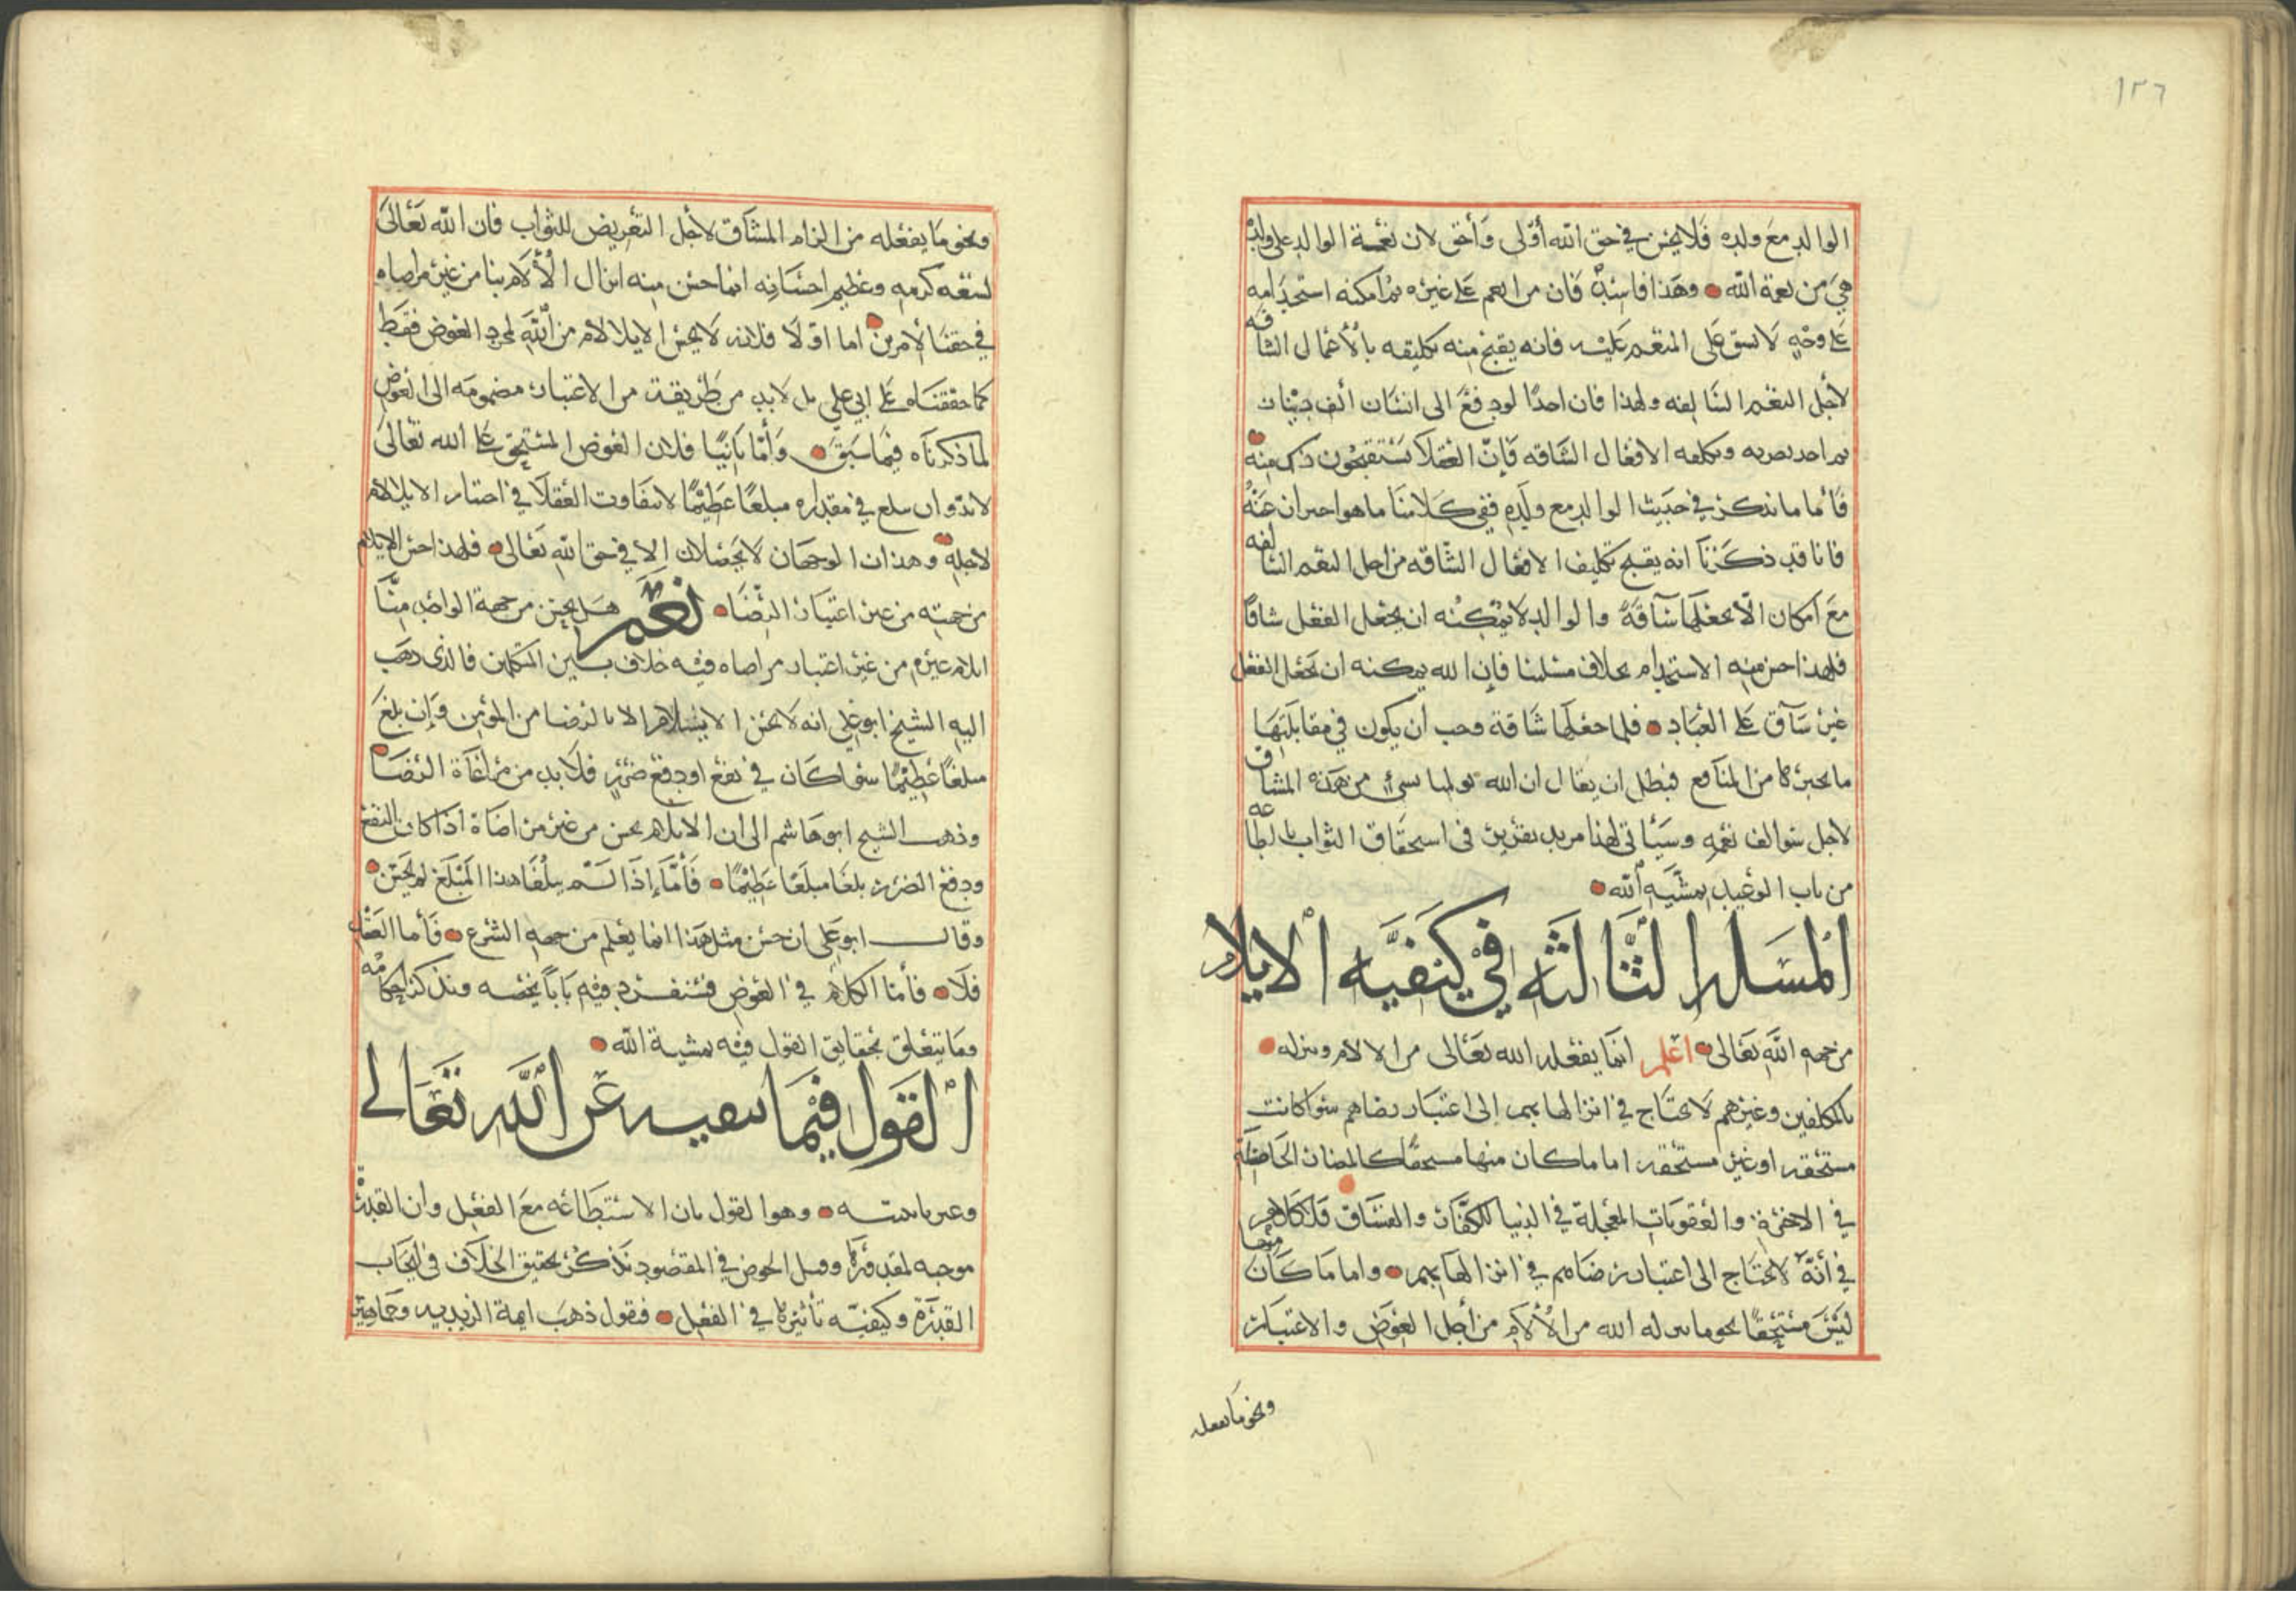 ١٢٦
الوالد مع ولده فلا يحسن في حق الله أولى وأحق لان نعمة الوالد على ولده
هي من نعمة الله وهذا فاسد فان من انعم على غيره ثم امكنه استخدامه
على وجه لا يشق على المنعم عليه فانه يقبح منه تكليفه بالأعمال الشاقه
لأجل النعم السالفه ولهذا فان احدًا لو دفع الى انسان ألف دينار
ثم اخذ يضربه ويكلفه الافعال الشاقه فإنّ العقلا يستقبحون ذلك منه
فأما ما نذكر في حديث الوالد مع ولده ففي كلامنا ما هو احتراز عنه
فانا قد ذكرنا انه يقبح تكليف الافعال الشاقه من اجل النعم السالفه
مع امكان الّا يجعلها شآقةً والوالد لا يمكنه ان يجعل الفعل شاقًا
فلهذا حسن منه الاستخدام بخلاف مسلتنا فإن الله يمكنه ان يجعل الفعل
غير شآق على العباد فلما جعلها شاقة وجب أن يكون في مقابلتها
ما يجبرها من المنافع فبطل ان يقال ان الله يولينا شيء من هذه المشاق
لاجل سوالف نعمه وسيأتي لهذا مزيد تقرير في استحقاق الثواب بالطاعه
من باب الوعيد بمشيّه الله
المسله الثالثه في كيفيّه الايلام
من جهه الله تعالى اعلم انما يفعله الله تعالى من الالام وينزله
بالمكلفين وغيرهم لا يحتاج في انزالها بهم إلى اعتبار رضاهم سوا كانت
مستحقه او غير مستحقه اما ما كان منها مستحقًا كالمضار الحاصلة
في الاخرة والعقوبات المعجلة في الدنيا للكفّار والفسّاق فلا كلام
في أنّه لا يحتاج الى اعتبار رضاهم في انزالها بهم واما ما كان منها
ليس مستحقًا نحو ما ينزله الله من الألآم من أجل العوض والاعتبار
ونحو ما يفعله
ونحو ما يفعله من الزام المشآق لأجل التعريض للثواب فان الله تعالى
لسعه كرمه وعظيم احسانه انما حسن منه انزال الألام بنا من غير مراضاه
في حقنا لأمرين اما اوّلًا فلانه لا يحسن الايلام من الله لمجرد العوض فقط
كما حققناه على ابي علي بل لا بد من طريقة من الاعتبار مضمومه الى العوض
لما ذكرناه فيما سبق وأمّا ثانيًا فلان العوض المستحق على الله تعالى
لا بدّ وان يبلغ في مقداره مبلغًا عظيمًا لا يتفاوت العقلا في اختيار الايلام
لاجله وهذان الوجهان لا يحصلان إلا في حق الله تعالى فلهذا حسن الايلام
من جهته من غير اعتبار الرضا نعم هل يحسن من جهة الواحد منّا
ايلام غيره من غير اعتبار مراضاه فيه خلاف بين المتكلمين فالذى ذهب
اليه الشيخ ابو علي انه لا يحسن الايلام الا بالرضا من المؤلم وإن بلغ
مبلغًا عظيمًا سوا كان في نفع او دفع ضرر فلا بد من مراعاة الرضا
وذهب الشيخ ابو هاشم الى ان الايلام يحسن من غير مراضاة اذا كان النفع
ودفع الضرر بلغا مبلغًا عظيمًا فأمّا إذا لم يبلغا هذا المبلغ لم يحسن
وقال ابو علي ان حسن مثل هذا انما يعلم من جهه الشرع فأما العقل
فلا فأما الكلام في العوض فسنفرد فيه بابًا يخصه ونذكر احكامه
وما يتعلق بحقايق القول فيه بمشية الله
القول فيما ننفيه عن الله تعالى
وهو القول بان الاستطاعه مع الفعل وان القدرة
موجبه لمقدورها وقبل الخوض في المقصود نذكر تحقيق الخلاف في ايجاب
القدرة وكيفيّه تأثيرها في الفعل فنقول ذهب ايمة الزيديه وجماهير